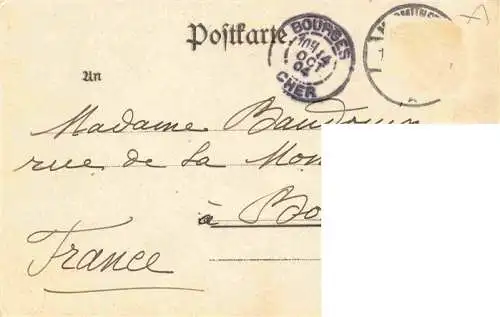 Postkarte.
BOURGES
10H 14
OCT
04
CHER
An
Madame Baudouin
rue de la Mon
à Bo
France